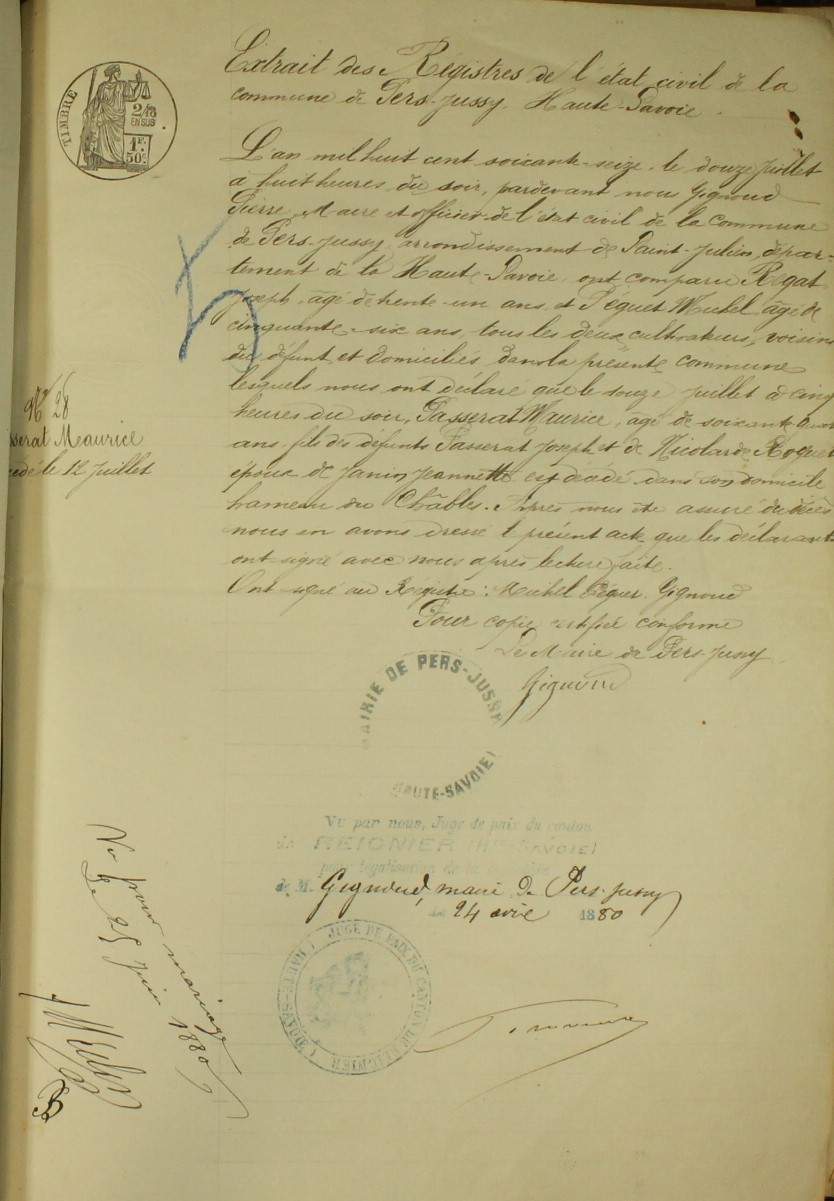 Extrait des Registres de l'état civil de la
commune de Pers-Jussy, Haute-Savoie.
TIMBRE
2/10
EN SUS
1F.
50C.
L'an mil huit cent soixante-seize, le douze juillet
à huit heures du soir, pardevant nou Gignoud
Pierre, Maire et officier de l'état civil de la commune
de Pers-Jussy, arrondissement de Saint-Julien, dépar-
tement de la Haute-Savoie, ont comparu Régat
Joseph, agé de trente-un ans, et Péguet Michel, âgé de
cinquante-six ans, tous les deux cultivateurs, voisins
du défunt, et domiciliés dans la présente commune
lesquels nous ont déclaré que le douze juillet à cinq
heures du soir, Passerat Maurice, agé de soixante quatr
ans, fils des défunts Passerat Joseph et de Nicolarde Roguet
époux de Janin Jeannette est décédé dans son domicile
hameau du Châbles. Après nous être assuré du décès
nous en avons dressé le présent acte que les déclarant
ont signé avec nous après lecture faite.
Ont signé au Registre: Michel Péguet. Gignoud
Pour copie certifiée conforme
Le Maire de Pers-Jussy
Gignoud
N° 28
sserat Maurice
cédé le 12 Juillet
MAIRIE DE PERS-JUSSY
(HAUTE-SAVOIE)
Vu par nous, Juge de paix du canton
de REIGNIER (Hte SAVOIE)
pour légalisation de la
de M. Gignoud, maire de Pers-Jussy
24 avril 1880
JUGE DE PAIX DU CANTON DE REIGNIER
(HAUTE-SAVOIE)
Vu pour mariage
Le 25 Juin 1880
B